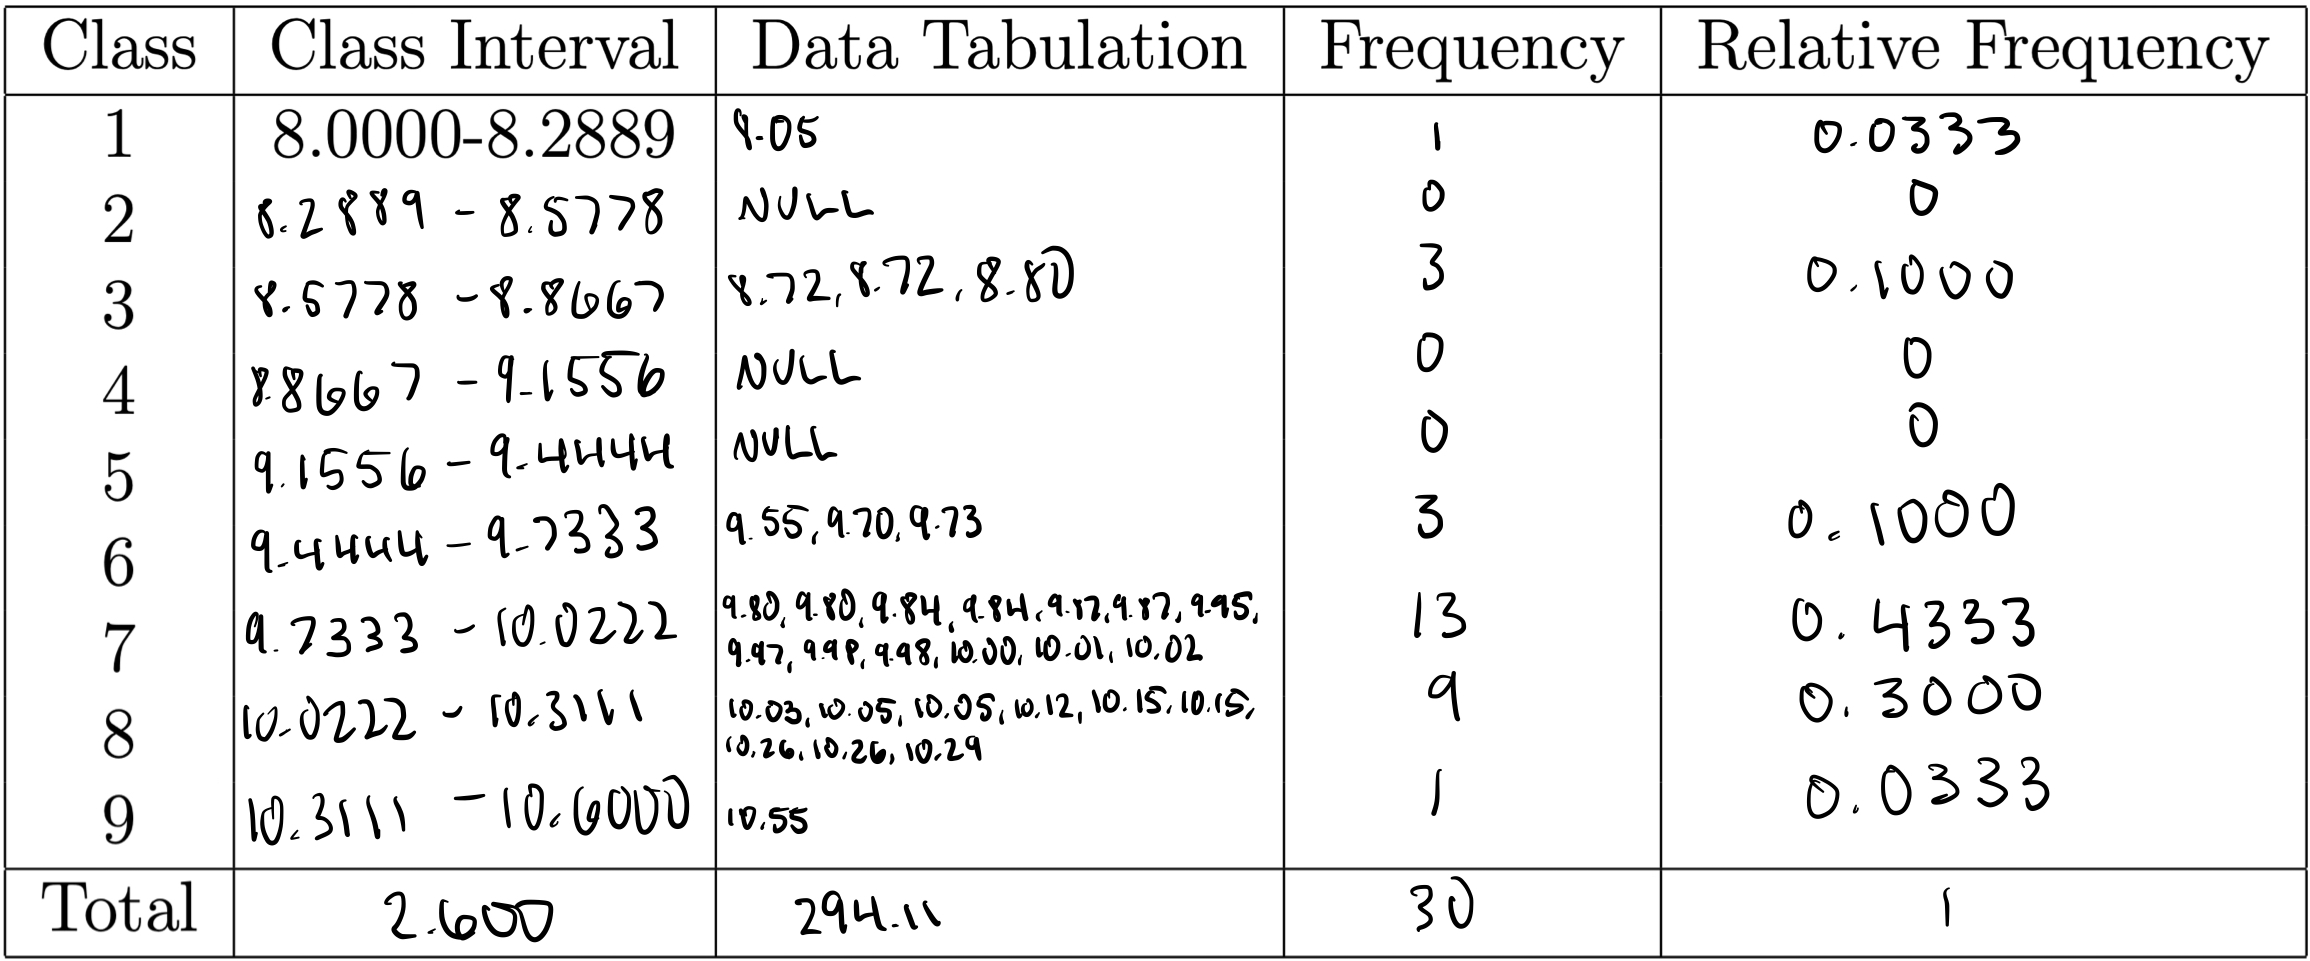 Class Class Interval Data Tabulation Frequency Relative Frequency
1 8.0000-8.2889 8.05 1 0.0333
2 8.2889 - 8.5778 NULL 0 0
3 8.5778 - 8.8667 8.72, 8.72, 8.80 3 0.1000
4 8.8667 - 9.1556 NULL 0 0
5 9.1556 - 9.4444 NULL 0 0
6 9.4444 - 9.7333 9.55, 9.70, 9.73 3 0.1000
7 9.7333 - 10.0222 9.80, 9.80, 9.84, 9.84, 9.87, 9.87, 9.95, 13 0.4333
9.97, 9.98, 9.98, 10.00, 10.01, 10.02
8 10.0222 - 10.3111 10.03, 10.05, 10.05, 10.12, 10.15, 10.15, 9 0.3000
10.26, 10.26, 10.29
9 10.3111 - 10.6000 10.55 1 0.0333
Total 2.600 294.11 30 1